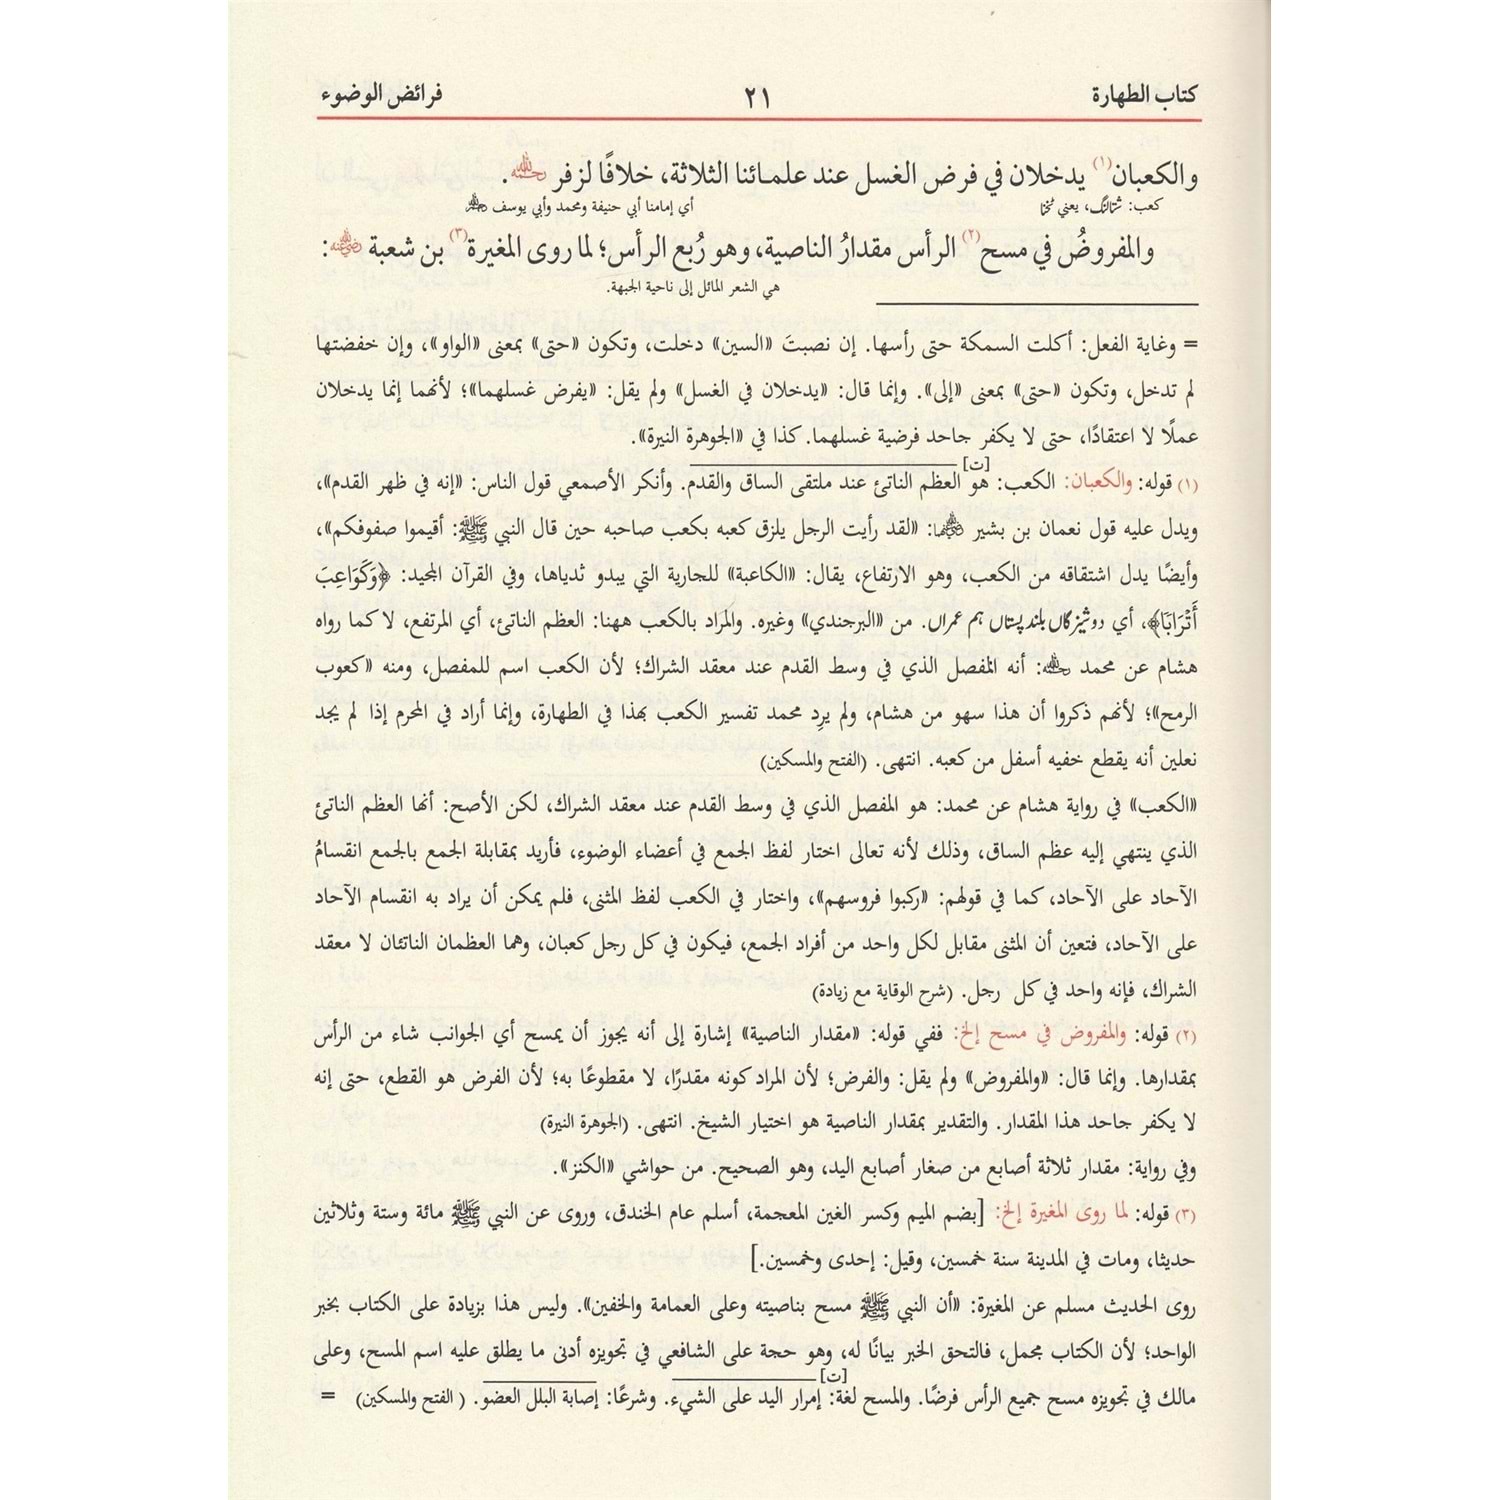 كتاب الطهارة ٢١ فرائض الوضوء
والكعبان(١) يدخلان في فرض الغسل عند علمائنا الثلاثة، خلافًا لزفر رحمه الله.
كعب: شتالنگ، يعني ٹخنا أي إمامنا أبي حنيفة ومحمد وأبي يوسف رحمهم الله
والمفروضُ في مسح(٢) الرأس مقدارُ الناصية، وهو رُبع الرأس؛ لما روى المغيرة(٣) بن شعبة رضي الله عنه:
هي الشعر المائل إلى ناحية الجبهة.
= وغاية الفعل: أكلت السمكة حتى رأسها. إن نصبتَ «السين» دخلت، وتكون «حتى» بمعنى «الواو»، وإن خفضتها
لم تدخل، وتكون «حتى» بمعنى «إلى». وإنما قال: «يدخلان في الغسل» ولم يقل: «يفرض غسلهما»؛ لأنهما إنما يدخلان
عملًا لا اعتقادًا، حتى لا يكفر جاحد فرضية غسلهما. كذا في «الجوهرة النيرة».
(١) قوله: والكعبان: الكعب: هو [ت] العظم الناتئ عند ملتقى الساق والقدم. وأنكر الأصمعي قول الناس: «إنه في ظهر القدم»،
ويدل عليه قول نعمان بن بشير رضي الله عنهما: «لقد رأيت الرجل يلزق كعبه بكعب صاحبه حين قال النبي ﷺ: أقيموا صفوفكم»،
وأيضًا يدل اشتقاقه من الكعب، وهو الارتفاع، يقال: «الكاعبة» للجارية التي يبدو ثدياها، وفي القرآن المجيد: ﴿وَكَوَاعِبَ
أَتْرَابًا﴾، أي دوشيزگاں بلند پستاں ہم عمراں. من «البرجندي» وغيره. والمراد بالكعب ههنا: العظم الناتئ، أي المرتفع، لا كما رواه
هشام عن محمد رحمه الله: أنه المفصل الذي في وسط القدم عند معقد الشراك؛ لأن الكعب اسم للمفصل، ومنه «كعوب
الرمح»؛ لأنهم ذكروا أن هذا سهو من هشام، ولم يرِد محمد تفسير الكعب بهذا في الطهارة، وإنما أراد في المحرم إذا لم يجد
نعلين أنه يقطع خفيه أسفل من كعبه. انتهى. (الفتح والمسكين)
«الكعب» في رواية هشام عن محمد: هو المفصل الذي في وسط القدم عند معقد الشراك، لكن الأصح: أنها العظم الناتئ
الذي ينتهي إليه عظم الساق، وذلك لأنه تعالى اختار لفظ الجمع في أعضاء الوضوء، فأريد بمقابلة الجمع بالجمع انقسامُ
الآحاد على الآحاد، كما في قولهم: «ركبوا فروسهم»، واختار في الكعب لفظ المثنى، فلم يمكن أن يراد به انقسام الآحاد
على الآحاد، فتعين أن المثنى مقابل لكل واحد من أفراد الجمع، فيكون في كل رجل كعبان، وهما العظمان الناتئان لا معقد
الشراك، فإنه واحد في كل رجل. (شرح الوقاية مع زيادة)
(٢) قوله: والمفروض في مسح إلخ: ففي قوله: «مقدار الناصية» إشارة إلى أنه يجوز أن يمسح أي الجوانب شاء من الرأس
بمقدارها. وإنما قال: «والمفروض» ولم يقل: والفرض؛ لأن المراد كونه مقدرًا، لا مقطوعًا به؛ لأن الفرض هو القطع، حتى إنه
لا يكفر جاحد هذا المقدار. والتقدير بمقدار الناصية هو اختيار الشيخ. انتهى. (الجوهرة النيرة)
وفي رواية: مقدار ثلاثة أصابع من صغار أصابع اليد، وهو الصحيح. من حواشي «الكنز».
(٣) قوله: لما روى المغيرة إلخ: [بضم الميم وكسر الغين المعجمة، أسلم عام الخندق، وروى عن النبي ﷺ مائة وستة وثلاثين
حديثا، ومات في المدينة سنة خمسين، وقيل: إحدى وخمسين.]
روى الحديث مسلم عن المغيرة: «أن النبي ﷺ مسح بناصيته وعلى العمامة والخفين». وليس هذا بزيادة على الكتاب بخبر
الواحد؛ لأن الكتاب مجمل، فالتحق الخبر بيانًا له، وهو حجة على الشافعي في تجويزه أدنى ما يطلق عليه اسم المسح، وعلى
مالك في تجويزه مسح جميع الرأس فرضًا. والمسح لغة: [ت] إمرار اليد على الشيء. وشرعًا: إصابة البلل العضو. (الفتح والمسكين) =